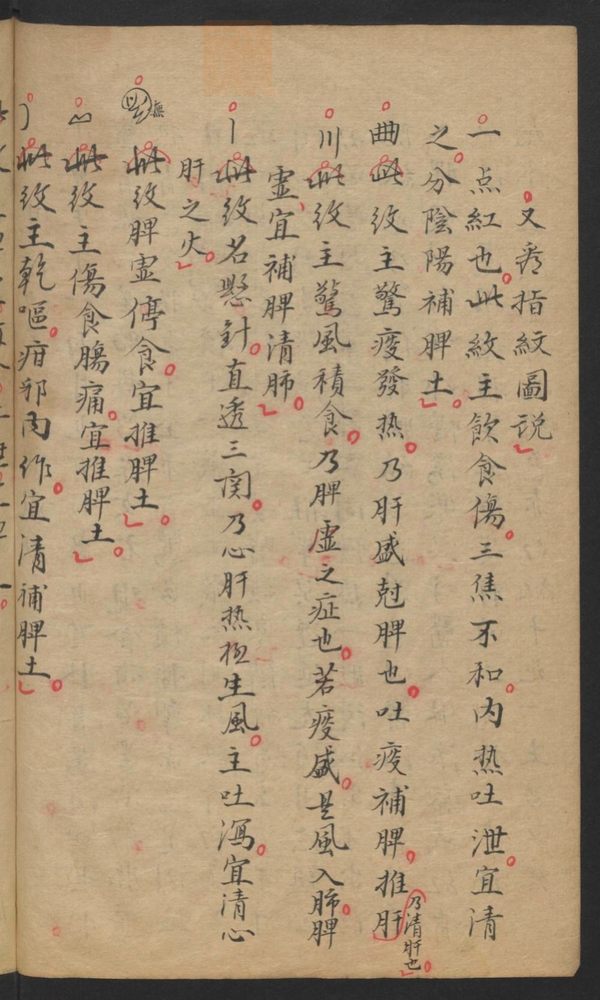 又看指紋圖説
一点紅也此紋主飲食傷三焦不和内热吐泄宜清
之分陰陽補脾土
曲此纹主驚疫發热乃肝盛尅脾也吐疫補脾推肝乃清肝也
川此纹主驚風積食乃脾虚之症也若疫盛是風入肺脾
虚宜補脾清肺
丨此纹名懸針直透三関乃心肝热极生風主吐瀉宜清心
肝之火
此纹脾虚停食宜推脾土
此纹主傷食腸痛宜推脾土
此纹主乾嘔疳邪内作宜清補脾土